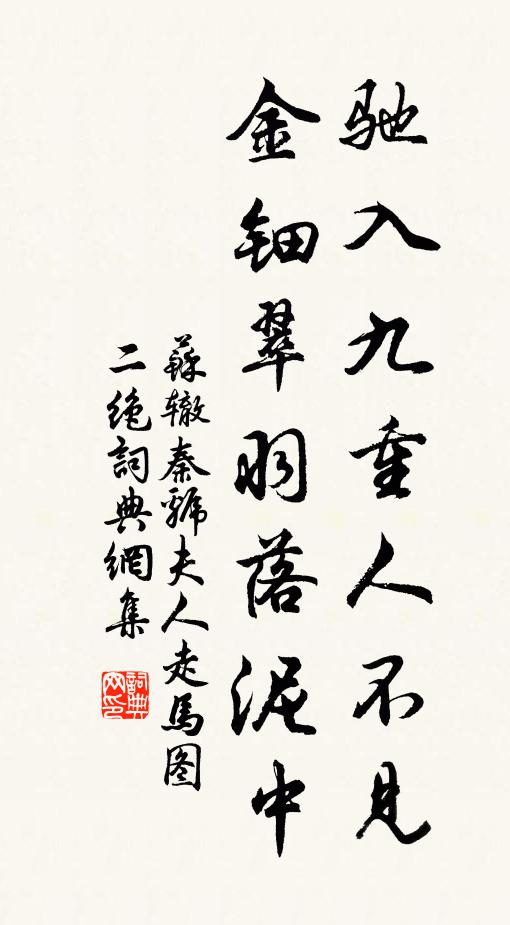 驰入九重人不見
金鈿翠羽落泥中
蘇辙秦虢夫人走馬图
二絶詞典網集
詞典网印